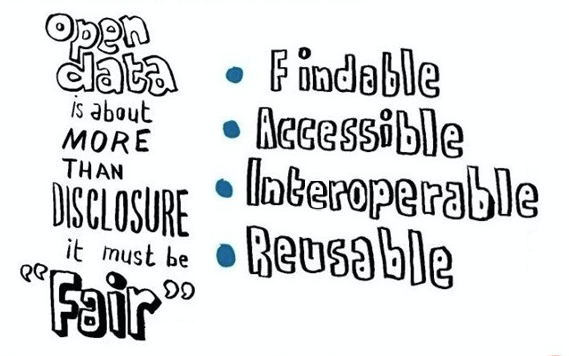 open
data
is about
MORE
THAN
DISCLOSURE
it must be
“Fair”
• Findable
• Accessible
• Interoperable
• Reusable